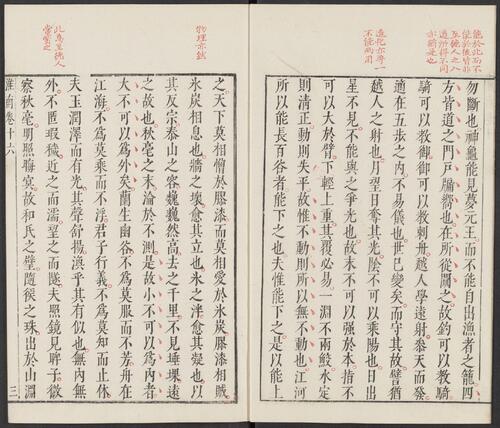 能於此而不
能於彼皆非
道所得不同
勿斷也神龜能見夢元王而不能自出漁者之籠四
方皆道之門戶牖嚮也在所從闚之故釣可以教騎
騎可以教御御可以教刺舟越人學遠射參天而發
適在五步之內不易儀也世已變矣而守其故譬猶
不能兩用
越人之射也月望日奪其光陰不可以乘陽也日出
星不見不能與之爭光也故末不可以强於本指不
可以大於臂下輕上重其覆必易一淵不兩鮫水定
則清正動則失平故惟不動則所以無不動也江河
所以能長百谷者能下之也夫惟能下之是以能上
物理亦然
之天下莫相憎於膠漆而莫相愛於氷炭膠漆相賊
氷炭相息也牆之壞愈其立也氷之泮愈其凝也以
其反宗泰山之容巍巍然高去之千里不見埵堁遠
之故也秋毫之末淪於不測是故小不可以為內者
大不可以為外矣蘭生幽谷不為莫服而不芳舟在
江海不為莫乘而不浮君子行義不為莫知而止休
夫玉潤澤而有光其聲舒揚渙乎其有似也無內無
外不匿瑕穢近之而濡望之而隧夫照鏡見眸子微
察秋毫明照晦冥故和氏之璧隨侯之珠出於山淵
淮南卷十六 三